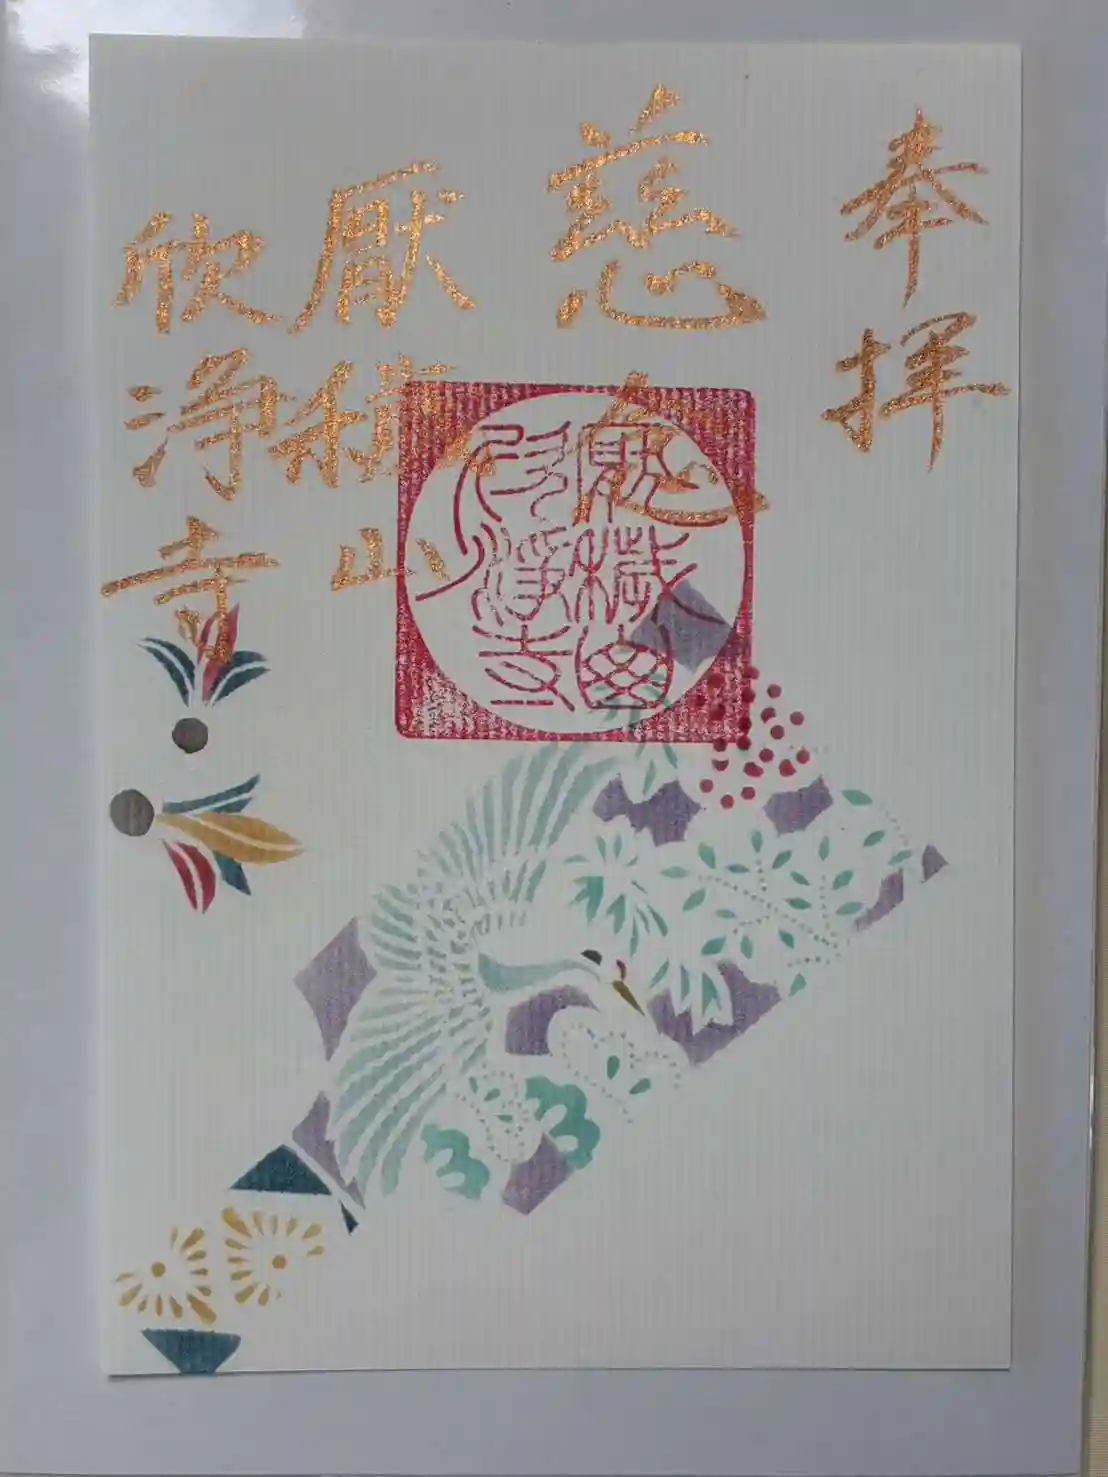 奉拝
慈念
厭穢山
欣浄寺
厭穢山
欣浄寺